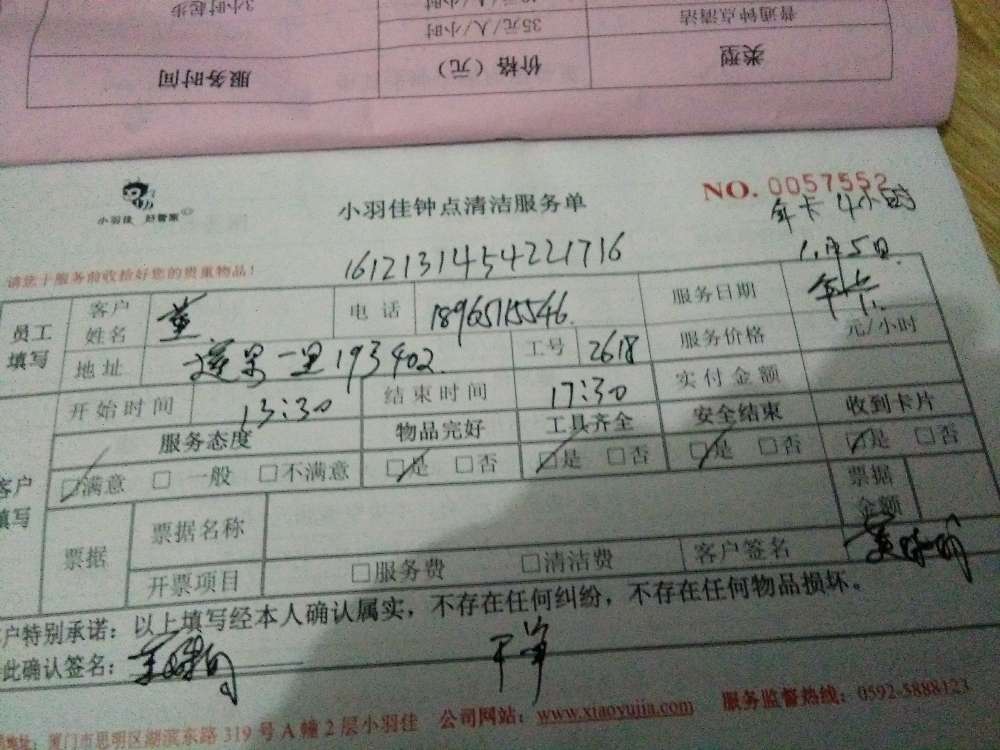 3小时起步
35元/人/小时
普通钟点清洁
服务时间
价格（元）
类型
小羽佳 好管家
小羽佳钟点清洁服务单
NO. 0057552
年卡 4小时
请您于服务前收拾好您的贵重物品！
1612131454221716
员工填写
客户姓名
电话
服务日期
1月5日
年卡
地址
193 402
工号
2618
服务价格
元/小时
开始时间
13:30
结束时间
17:30
实付金额
服务态度
物品完好
工具齐全
安全结束
收到卡片
客户填写
□满意 □ 一般 □不满意
□是 □否
□是 □否
□是 □否
□是 □否
票据
票据名称
票据金额
开票项目
□服务费 □清洁费
客户签名
客户特别承诺：以上填写经本人确认属实，不存在任何纠纷，不存在任何物品损坏。
此确认签名：
干净
地址：厦门市思明区湖滨东路 319 号 A 幢 2 层小羽佳 公司网站：www.xiaoyujia.com 服务监督热线：0592-5888123